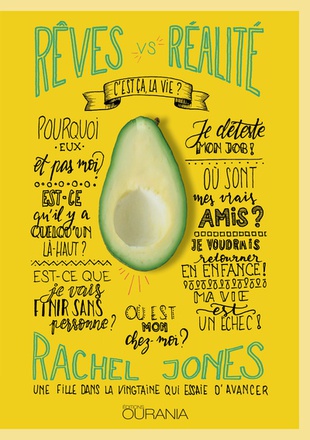 RÊVES VS RÉALITÉ
C'EST ÇA, LA VIE?
POURQUOI
- EUX -
et pas moi?
EST-CE
qu'il y a
QUELQU'UN
LÀ-HAUT?
EST-CE QUE
je vais
FINIR SANS
personne?
Je déteste
MON JOB!
OÙ SONT
mes vrais
AMIS?
JE VOUDRAIS
retourner
EN ENFANCE!
MA VIE
EST
UN ÉCHEC!
OÙ EST
MON
chez-moi?
RACHEL JONES
UNE FILLE DANS LA VINGTAINE QUI ESSAIE D'AVANCER
ÉDITIONS
OURANIA